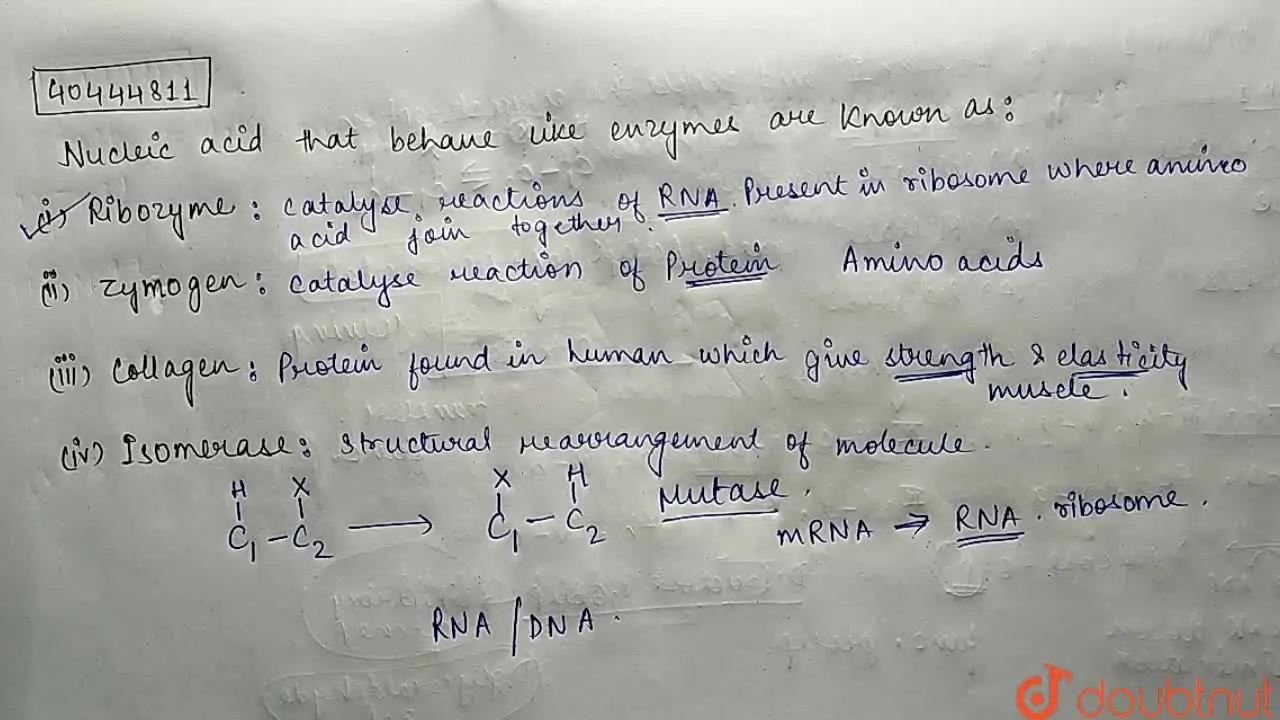 40444811
Nucleic acid that behave like enzymes are known as:
(i) Ribozyme: catalyse reactions of RNA. Present in ribosome where amino
acid join together.
(ii) Zymogen: catalyse reaction of Protein Amino acids
(iii) Collagen: Protein found in human which give strength & elasticity
muscle.
(iv) Isomerase: structural rearrangement of molecule.
H X X H
C1 - C2 → C1 - C2 Mutase.
mRNA → RNA. ribosome.
RNA/DNA.
doubtnut